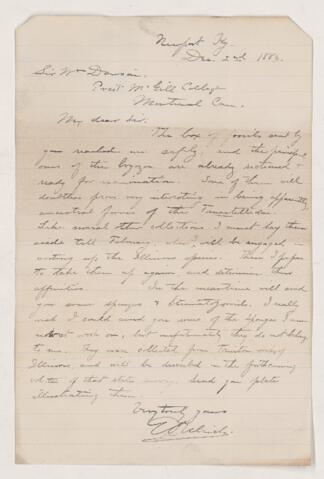 Newport Ky.
Dec. 2nd 1883.
Sir Wm Dawson.
Prest. McGill College
Montreal Can.
My dear Sir:
The box of fossils sent by
you reached me safely, and the principal
ones of the bryozoa are already sectioned &
ready for examination. Some of them will
doubtless prove very interesting in being apparently
ancestral forms of the
Like several other collections I must lay them
aside till February, when I will be engaged in
writing up the Illinois species. Then I hope
to take them up again and determine their
affinities. In the meantime will send
you some sponges & stromatoporoids. I really
wish I could send you some of the sponges I am
now at work on, but unfortunately they do not belong
to me. They were collected from Trenton rocks of
Illinois, and will be described in the forthcoming
volume of that state survey. Send you plates
illustrating them.
Very truly yours
E.O. Ulrich.